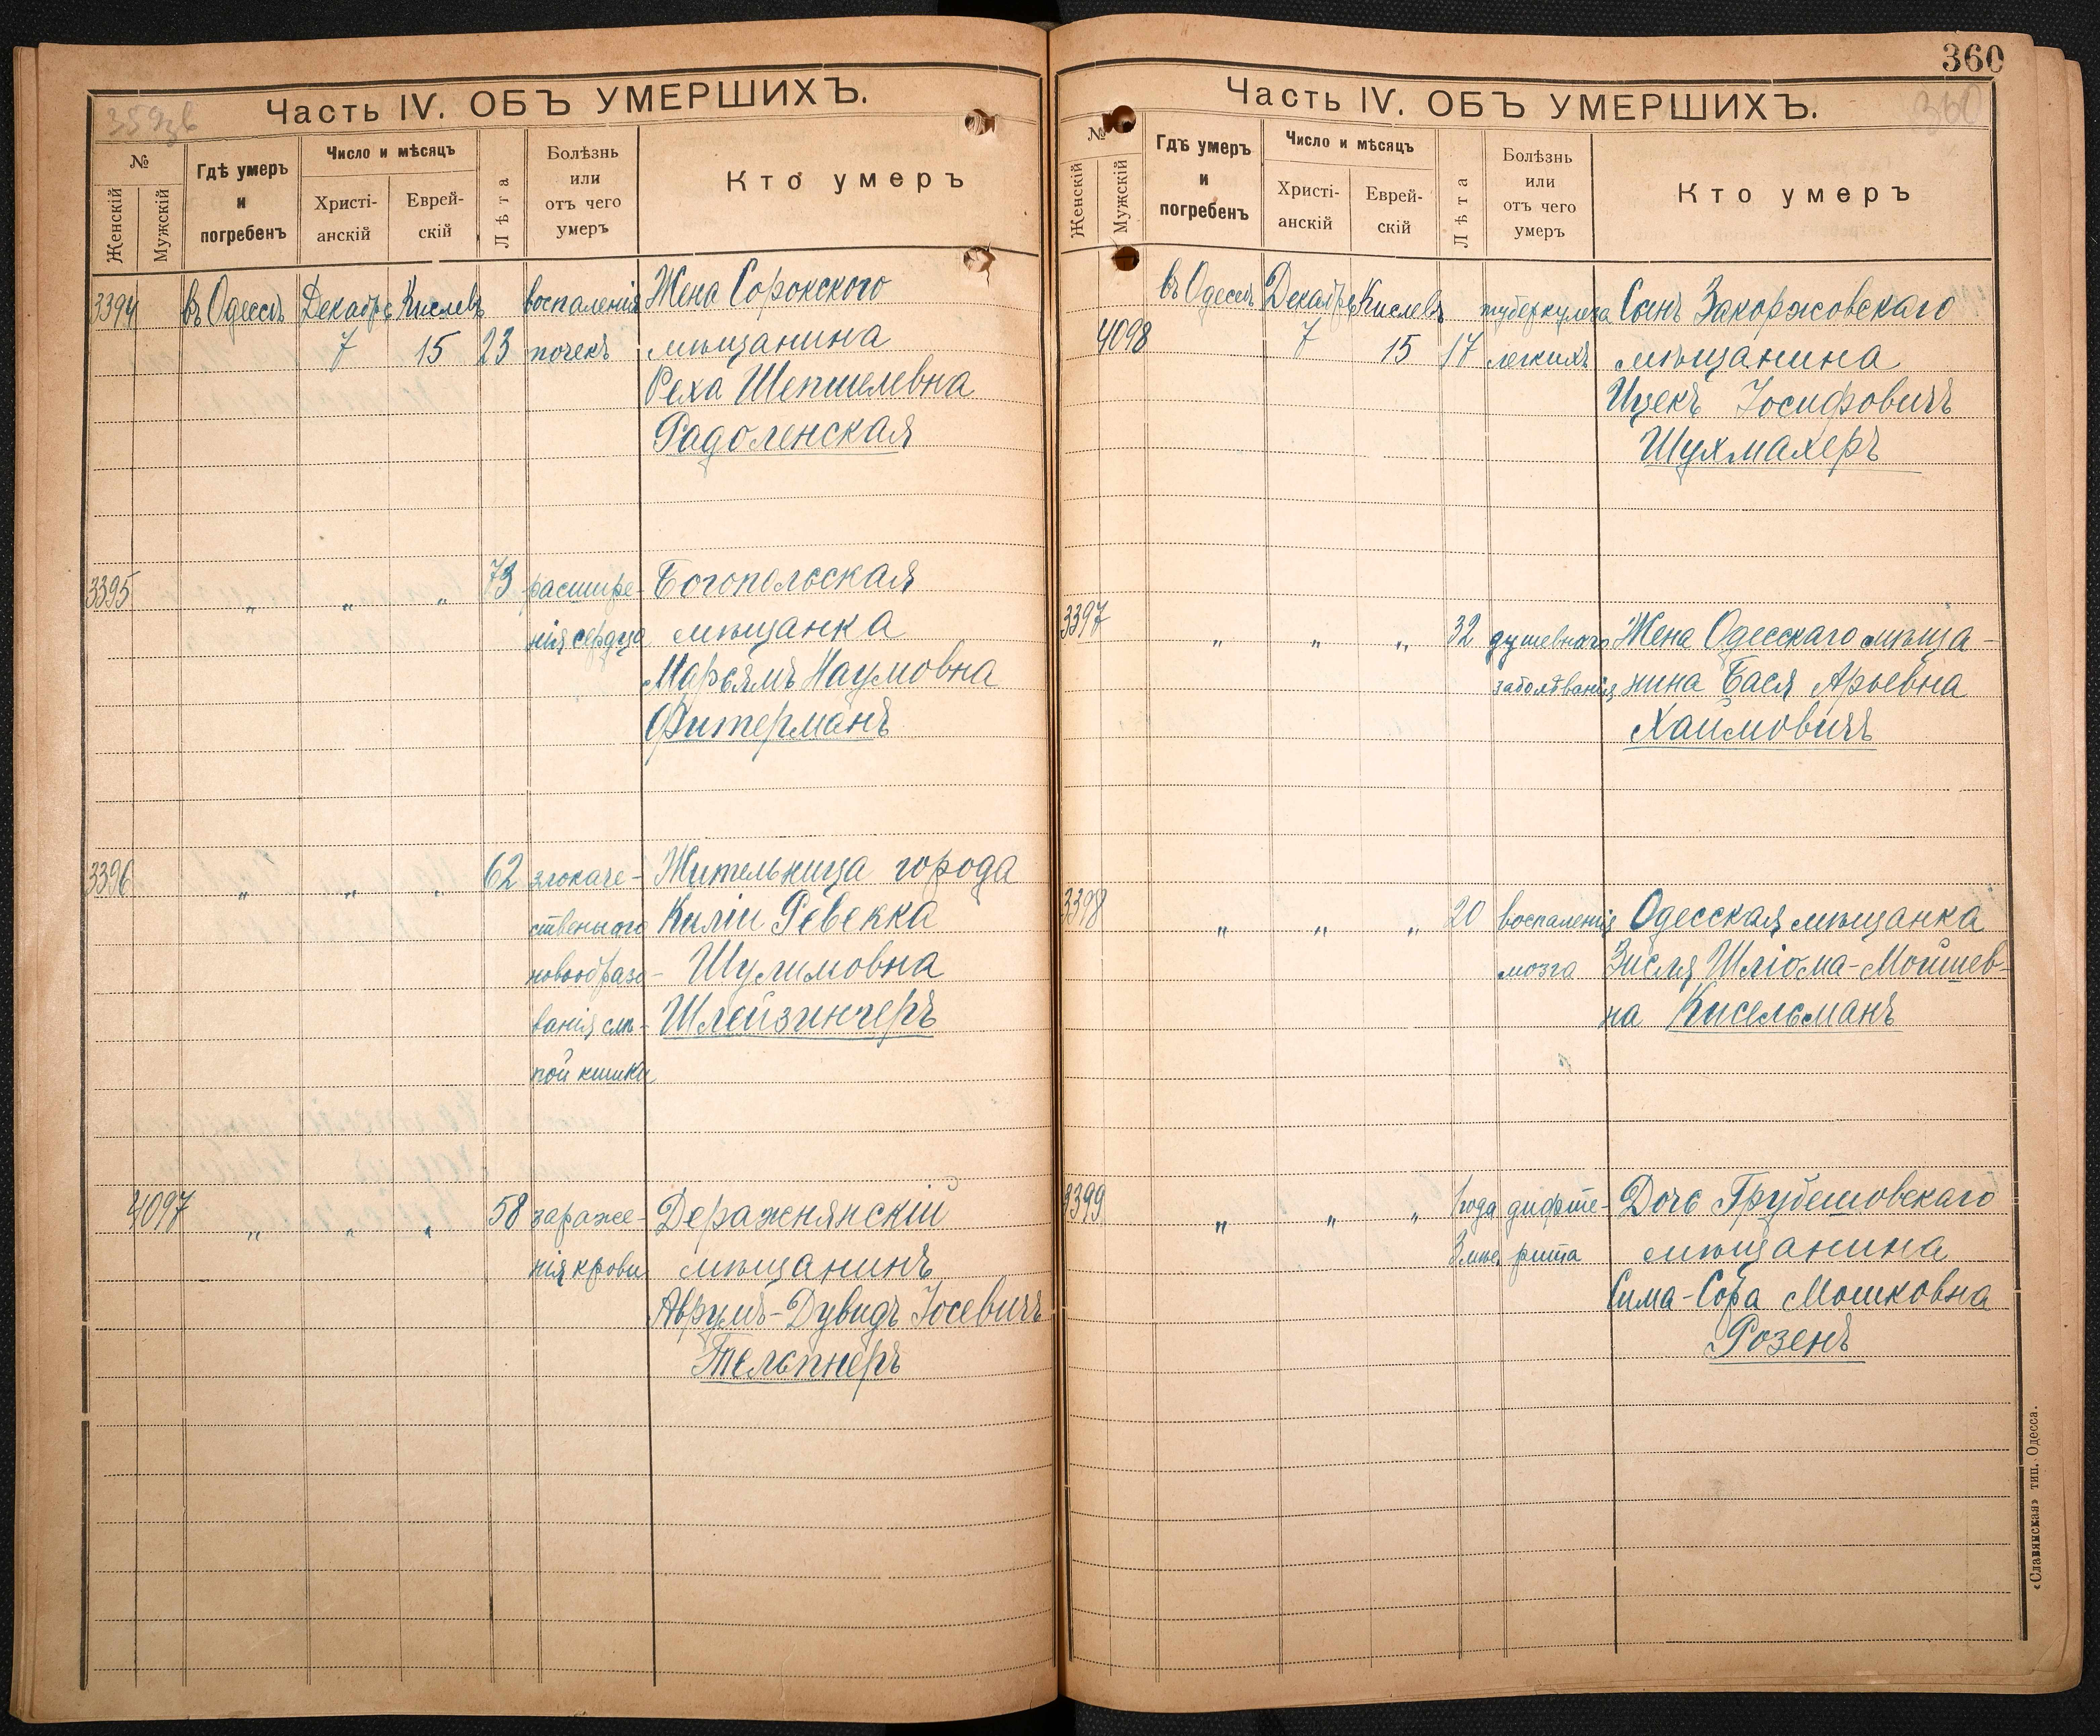 359об
Часть IV. ОБЪ УМЕРШИХЪ.
№
Женскій
Мужскій
Гдѣ умеръ
и
погребенъ
Число и мѣсяцъ
Христі-
анскій
Еврей-
скій
Лѣта
Болѣзнь
или
отъ чего
умеръ
Кто умеръ
3394 въ Одессѣ Декабрь Кислевъ воспаленія Жена Сорокского
7 15 23 почекъ мѣщанина
Реха Шепшелевна
Радоленская
3395 „ „ „ 73 расшире- Богопольская
нія сердца мѣщанка
Марьямъ Наумовна
Фитерманъ
3396 „ „ „ 62 злокаче- Жительница города
ственного Киліи Ревекка
новообразо- Шулимовна
ванія слѣ- Шлейзингеръ
пой кишки
4097 „ „ „ 58 зараже- Деражнянскій
нія крови мѣщанинъ
Аврумъ-Дувидъ Іосевичъ
Тельпнеръ
360
360
Часть IV. ОБЪ УМЕРШИХЪ.
№
Женскій
Мужскій
Гдѣ умеръ
и
погребенъ
Число и мѣсяцъ
Христі-
анскій
Еврей-
скій
Лѣта
Болѣзнь
или
отъ чего
умеръ
Кто умеръ
въ Одессѣ Декабрь Кислевъ туберкулеза Сынъ Закоржовскаго
4098 7 15 17 легкихъ мѣщанина
Ицекъ Іосифовичъ
Шухмахеръ
3397 „ „ „ 32 душевнаго Жена Одесскаго мѣща-
заболѣванія нина Бася Арьевна
Хаимовичъ
3398 „ „ „ 20 воспаленія Одесская мѣщанка
мозга Зисля Шліома-Мойшев-
на Кисельманъ
3399 „ „ „ 1 года дифте- Дочь Грубешовскаго
3 мѣс. рита мѣщанина
Сима-Сора Мошковна
Розенъ
«Славянская» тип. Одесса.